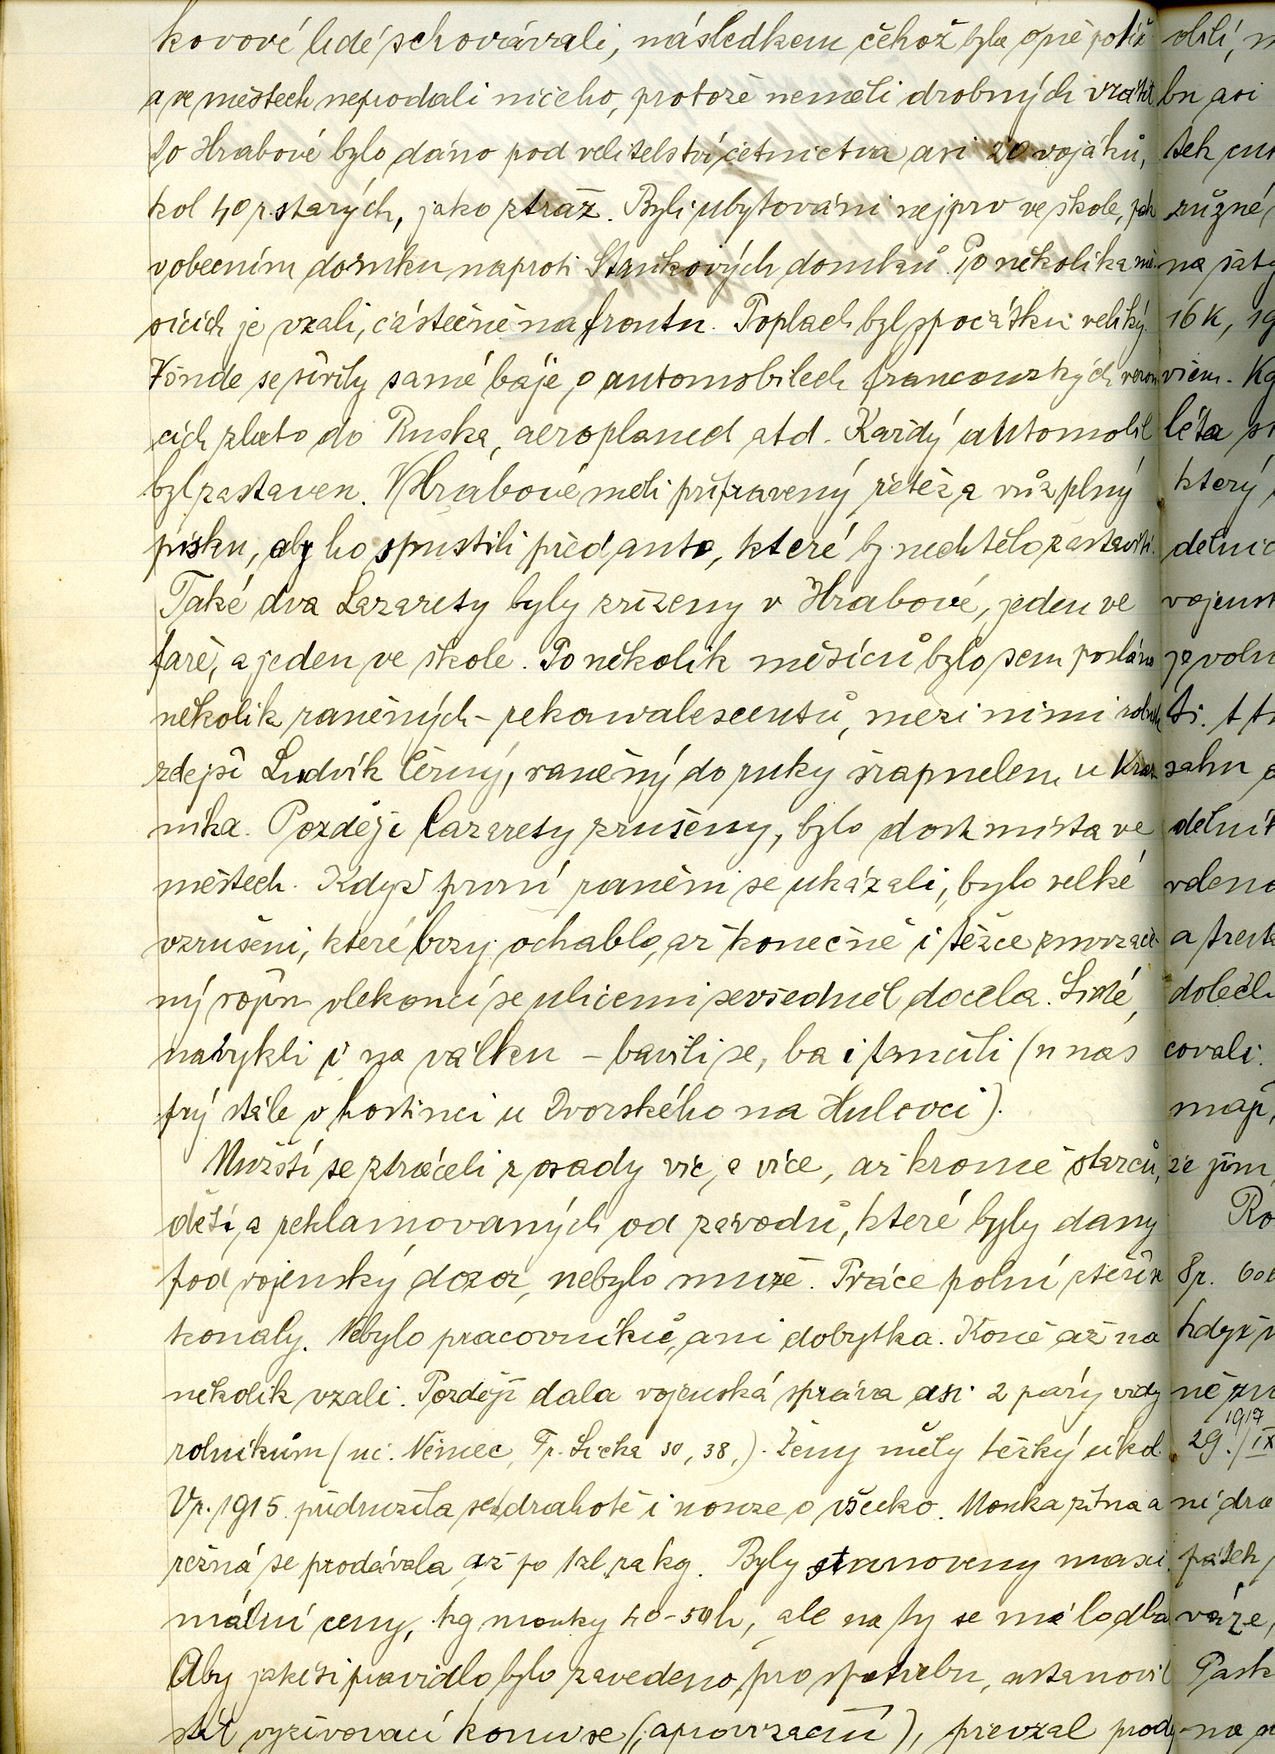 kovové lidé schovávali, následkem čehož byla opě potíž
a ve městech neprodali ničeho, protože neměli drobných vrátit
Do Hrabové bylo dáno pod velitelství četnictva asi 20 vojáků,
kol 40 r. starých, jako stráž. Byli ubytováni nejprv ve škole, pak
v obecním domku naproti Strukových domků. Po několika mě-
sících je vzali, částečně na frontu. Poplach byl zpočátku veliký.
Všude se šířily samé báje o automobilech francouzských vezou
cích zlato do Ruska, aeroplanech atd. Každý automobil
byl zastaven. V Hrabové měli připravený řetěz a vůz plný
písku, aby ho spustili před auto, které by nechtělo zastaviti.
Také dva Lazarety byly zřízeny v Hrabové, jeden ve
faře, a jeden ve škole. Po několik měsíců bylo sem posláno
několik raněných - rekonvalescentů, mezi nimi rolník
zdejší Ludvík Černý, raněný do ruky šrapnelem u Kras
nika. Později lazarety zrušeny, bylo dost místa ve
městech. Když první raněni se ukázali, bylo velké
vzrušení, které brzy ochablo, až konečně i těžce zmrzače-
ný vojín vlekoucí se ulicemi sevšedněl docela. Lidé,
navykli i na válku - bavili se, ba i tančili (u nás
prý stále v hostinci u Dvorského na Hulovci).
Mužští se ztráceli z osady víc, a více, až kromě starců,
dětí, a reklamovaných od závodů, které byly dany
pod vojenský dozor, nebylo muže. Práce polní stěží se
konaly. Nebylo pracovníků, ani dobytka. Koně až na
několik vzali. Později dala vojenská správa asi 2 páry vždy
rolníkům (uč. Němec, Fr. Lička 30, 38,). Ženy měly těžký úkol.
V r. 1915 přidružila se k drahotě i nouze o všecko. Mouka žitná a
režná se prodávala až po 1zl za kg. Byly stanoveny maxi
mální ceny, kg mouky 40-50h, ale na ty se málo dba
Aby jakési pravidlo bylo zavedeno pro spotřebu, ustanovil
stát vyživovací komise (aprovizační), převzal prod